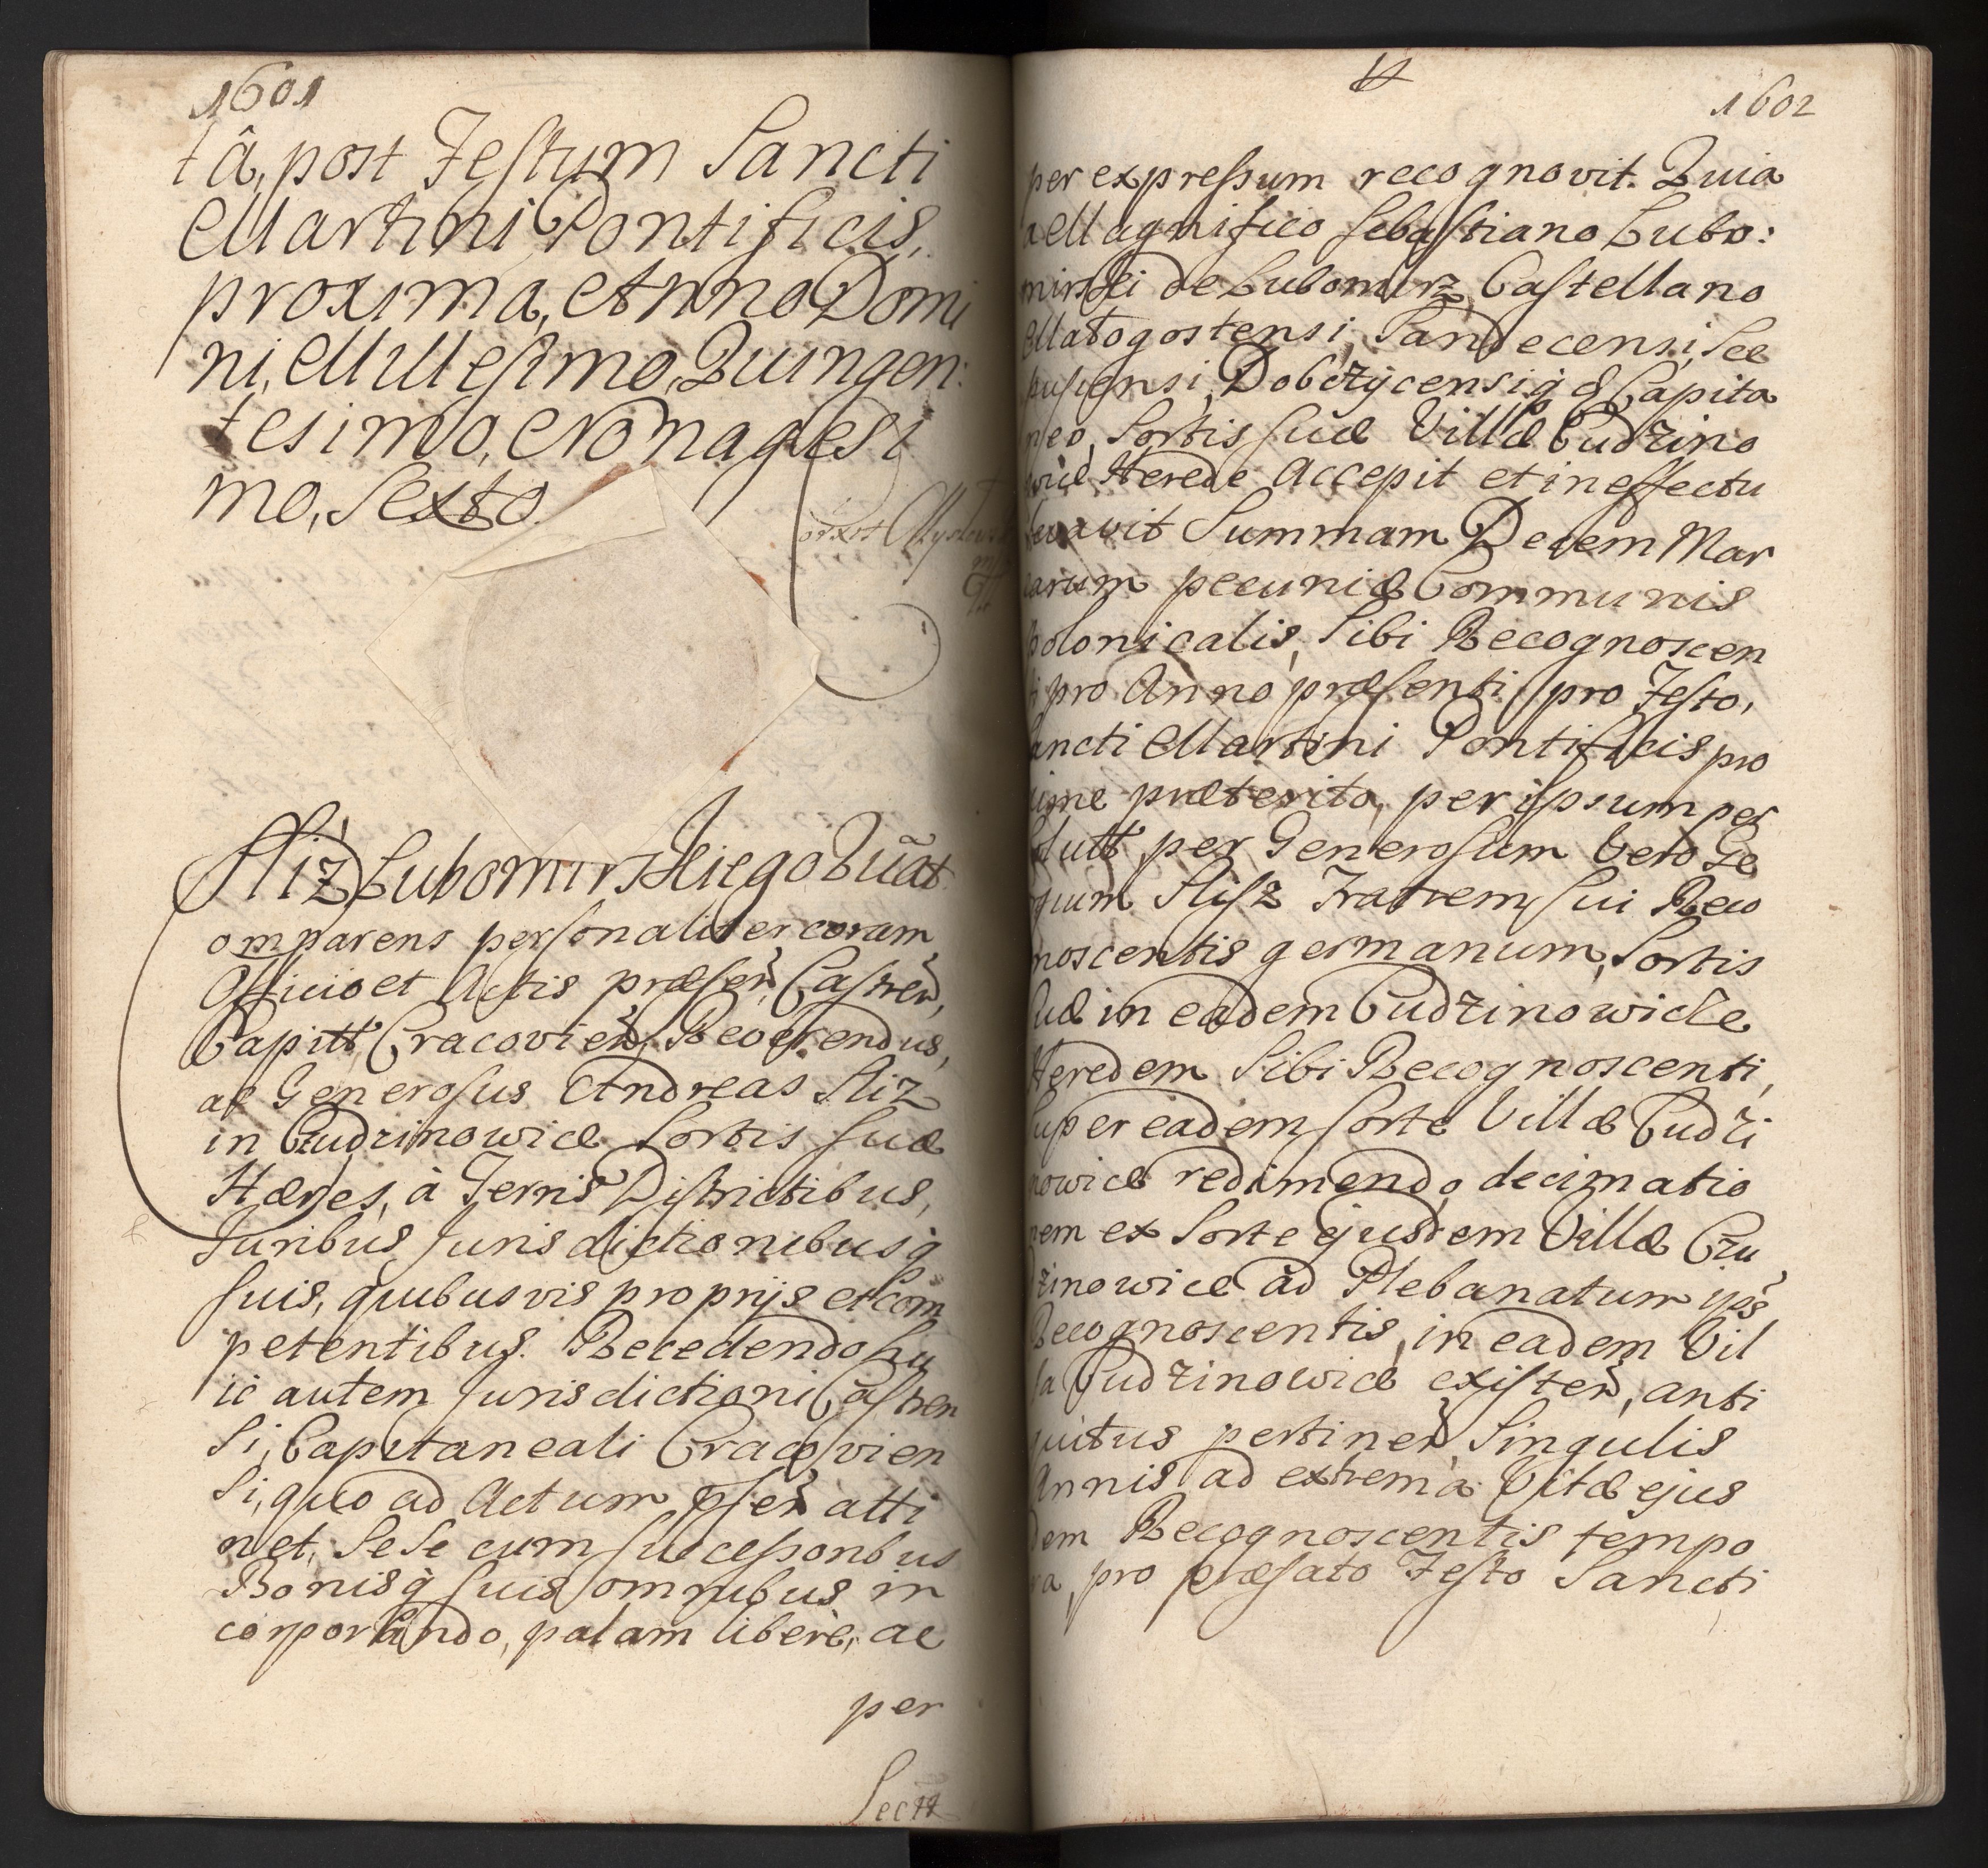 1601
tâ, post Festum Sancti
Martini Pontificis,
proxima, Anno Domi
ni, Millesimo, Quingen:
tesimo, Nonagesi
mo, Sexto.
Sliz Lubomirskiego Quãt
omparens personaliter coram
Officio et Actis præsen, Castren,
Capitt Cracovien, Reverendus,
ac Generosus Andreas Sliz
in Cudzinowice Sortis suæ
Hæres, à Terris Districtibus,
Juribus, Jurisdictionibusq
suis, quibusvis proprijs et com
petentibus. Recedendo hu
ic autem Jurisdictioni Castren
si, Capitaneali Cracovien
si, quo ad Actum psen atti
net, Sese cum successoribus
Bonisq suis omnibus in
corporando, palam libere, ac
per
Sectt
1602
per expressum recognovit. Quia
a Magnifico Sebastiano Lubo:
mirski de Lubomirz, Castellano
Małogostensi, Sandecensi, Sce
pusiensi, Dobczÿcensiq & Capita
neo, Sortis suæ Villæ Cudzino
wice Herede Accepit et in effectu
levavit Summam Decem Mar
carum pecuniæ Communis
Polonicalis, Sibi Recognoscen
ti pro Anno præsenti, pro Festo,
Sancti Martini Pontificis pro
xime præterito, per ipsum per
solutt, per Generosum vero Ge
orgium Slisz Fratrem sui Reco
gnoscentis germanum, Sortis
suæ in eadem Cudzinowice
Heredem Sibi Recognoscenti,
super eadem sorte Villæ Cudzi
nowice redimendo decimatio
nem ex Sorte ejusdem Villæ Czu
dzinowice ad Plebanatum ips
Recognoscentis, in eadem Vil
la Cudzinowice existen, anti
quitus pertinen, Singulis
Annis ad extrema Vitæ ejus
dem Recognoscentis tempo
ra, pro præfato Festo Sancti